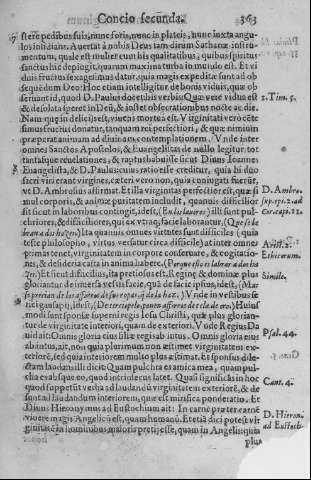 Concio secunda. 363
stere pedibus suis, nunc foris, nunc in plateis, nunc iuxta angu-
los insidians. Auertat à nobis Deus tam dirum Sathanæ instru-
mentum, quale est mulier cum his qualitatibus, quibus spiritus
sanctus hic depingit, quarum maxima turba in mundo est. Et vi
duis fructus sexagesimus datur, quia magis expeditæ sunt ad ob
sequédum Deo: Hoc etiam intelligitur de bonis viduis, quæ ob
seruant id, quod D. Paulus docet his verbis: Quæ verè vidua est
& desolata speret in Deū, & instet obsecrationibus nocte ac die.
Nam quæ in delicijs est, viuens mortua est. Virginitati verò cēte
simus fructus donatur, tanquam rei perfectiori, & quæ nimium
præparat animam ad diuinam contemplationem. Vnde inter
omnes Sanctos Apostolos, & Euangelistas de nullo legitur tot
tantasque reuelationes, & raptus habuisse sicut Diuus Ioannes
Euangelista, & D. Paulus: cuius ratio esse creditur, quia hi duo
sacri viri erant virgines, cæteri verò non, quia coniugati fuerūt,
vt D. Ambrosius affirmat. Et si la virginitas perfectio est, quæ si
mul corporis, & animæ puritatem includit, quamuis difficilior
sit sicut in laboribus contingit, idest, (En las lauores) illi sunt pul-
chriores, & difficiliores, qui ex vtraq; facie laborantur, (Que se la
bran a dos hazes) Ita quamuis omnes virtutes sunt difficiles (quia
teste philosopho, virtus versatur circa difficile) at inter omnes
primas tenet, virginitatem in corpore conseruare, & cogitatio-
nes, & desideria casta in anima habere. (Porque esso es labrar a dos ha
zes.) Et sicut difficilis, ita pretiosus est. Reginæ & dominæ plus
gloriantur de inuersa vestis facie, quā de facie ipsius, idest, (Mas
se precian de los aforros de sus ropas, q̄ de la haz.) Vnde in vestibus se
ricis gausapijs, idest, (De terciopelo ponen aforros de tela de oro.) Huius
modi sunt sponsæ superni regis Iesu Christi, quæ plus glorian-
tur de virginitate interiori, quam de exteriori. Vnde Regius Da
uid ait: Omnis gloria eius filiæ regis ab intus. Omnis gloria eius
ab intus, ait, non quia plurimum non æstimet virginitatem ex-
teriorē, sed quia interiorem multo plus æstimat. Et sponsus dile-
ctam laudans illi dicit: Quam pulchra es amica mea, quam pul-
chra es absque eo, quod intrinsecus latet. Quasi significās in hoc
quod suppetūt verba ad laudandū virginitatem exteriorē, & de
sunt ad laudandum interiorem, quæ est mirifica ponderatio. Et
Diuus Hieronymus ad Eustochium ait: In carne præter carnē
viuere magis Angelicū est, quam humanū. Et etiā dici potest vir
ginitatē in hominibus maioris pretij esse, quam in Angelis: quia
plus
1. Tim. 5.
D. Ambro.
Arist. 2.
Ethicorum.
Simile.
Psal. 44.
Cant. 4.
D. Hieron.
ad Eustoch.